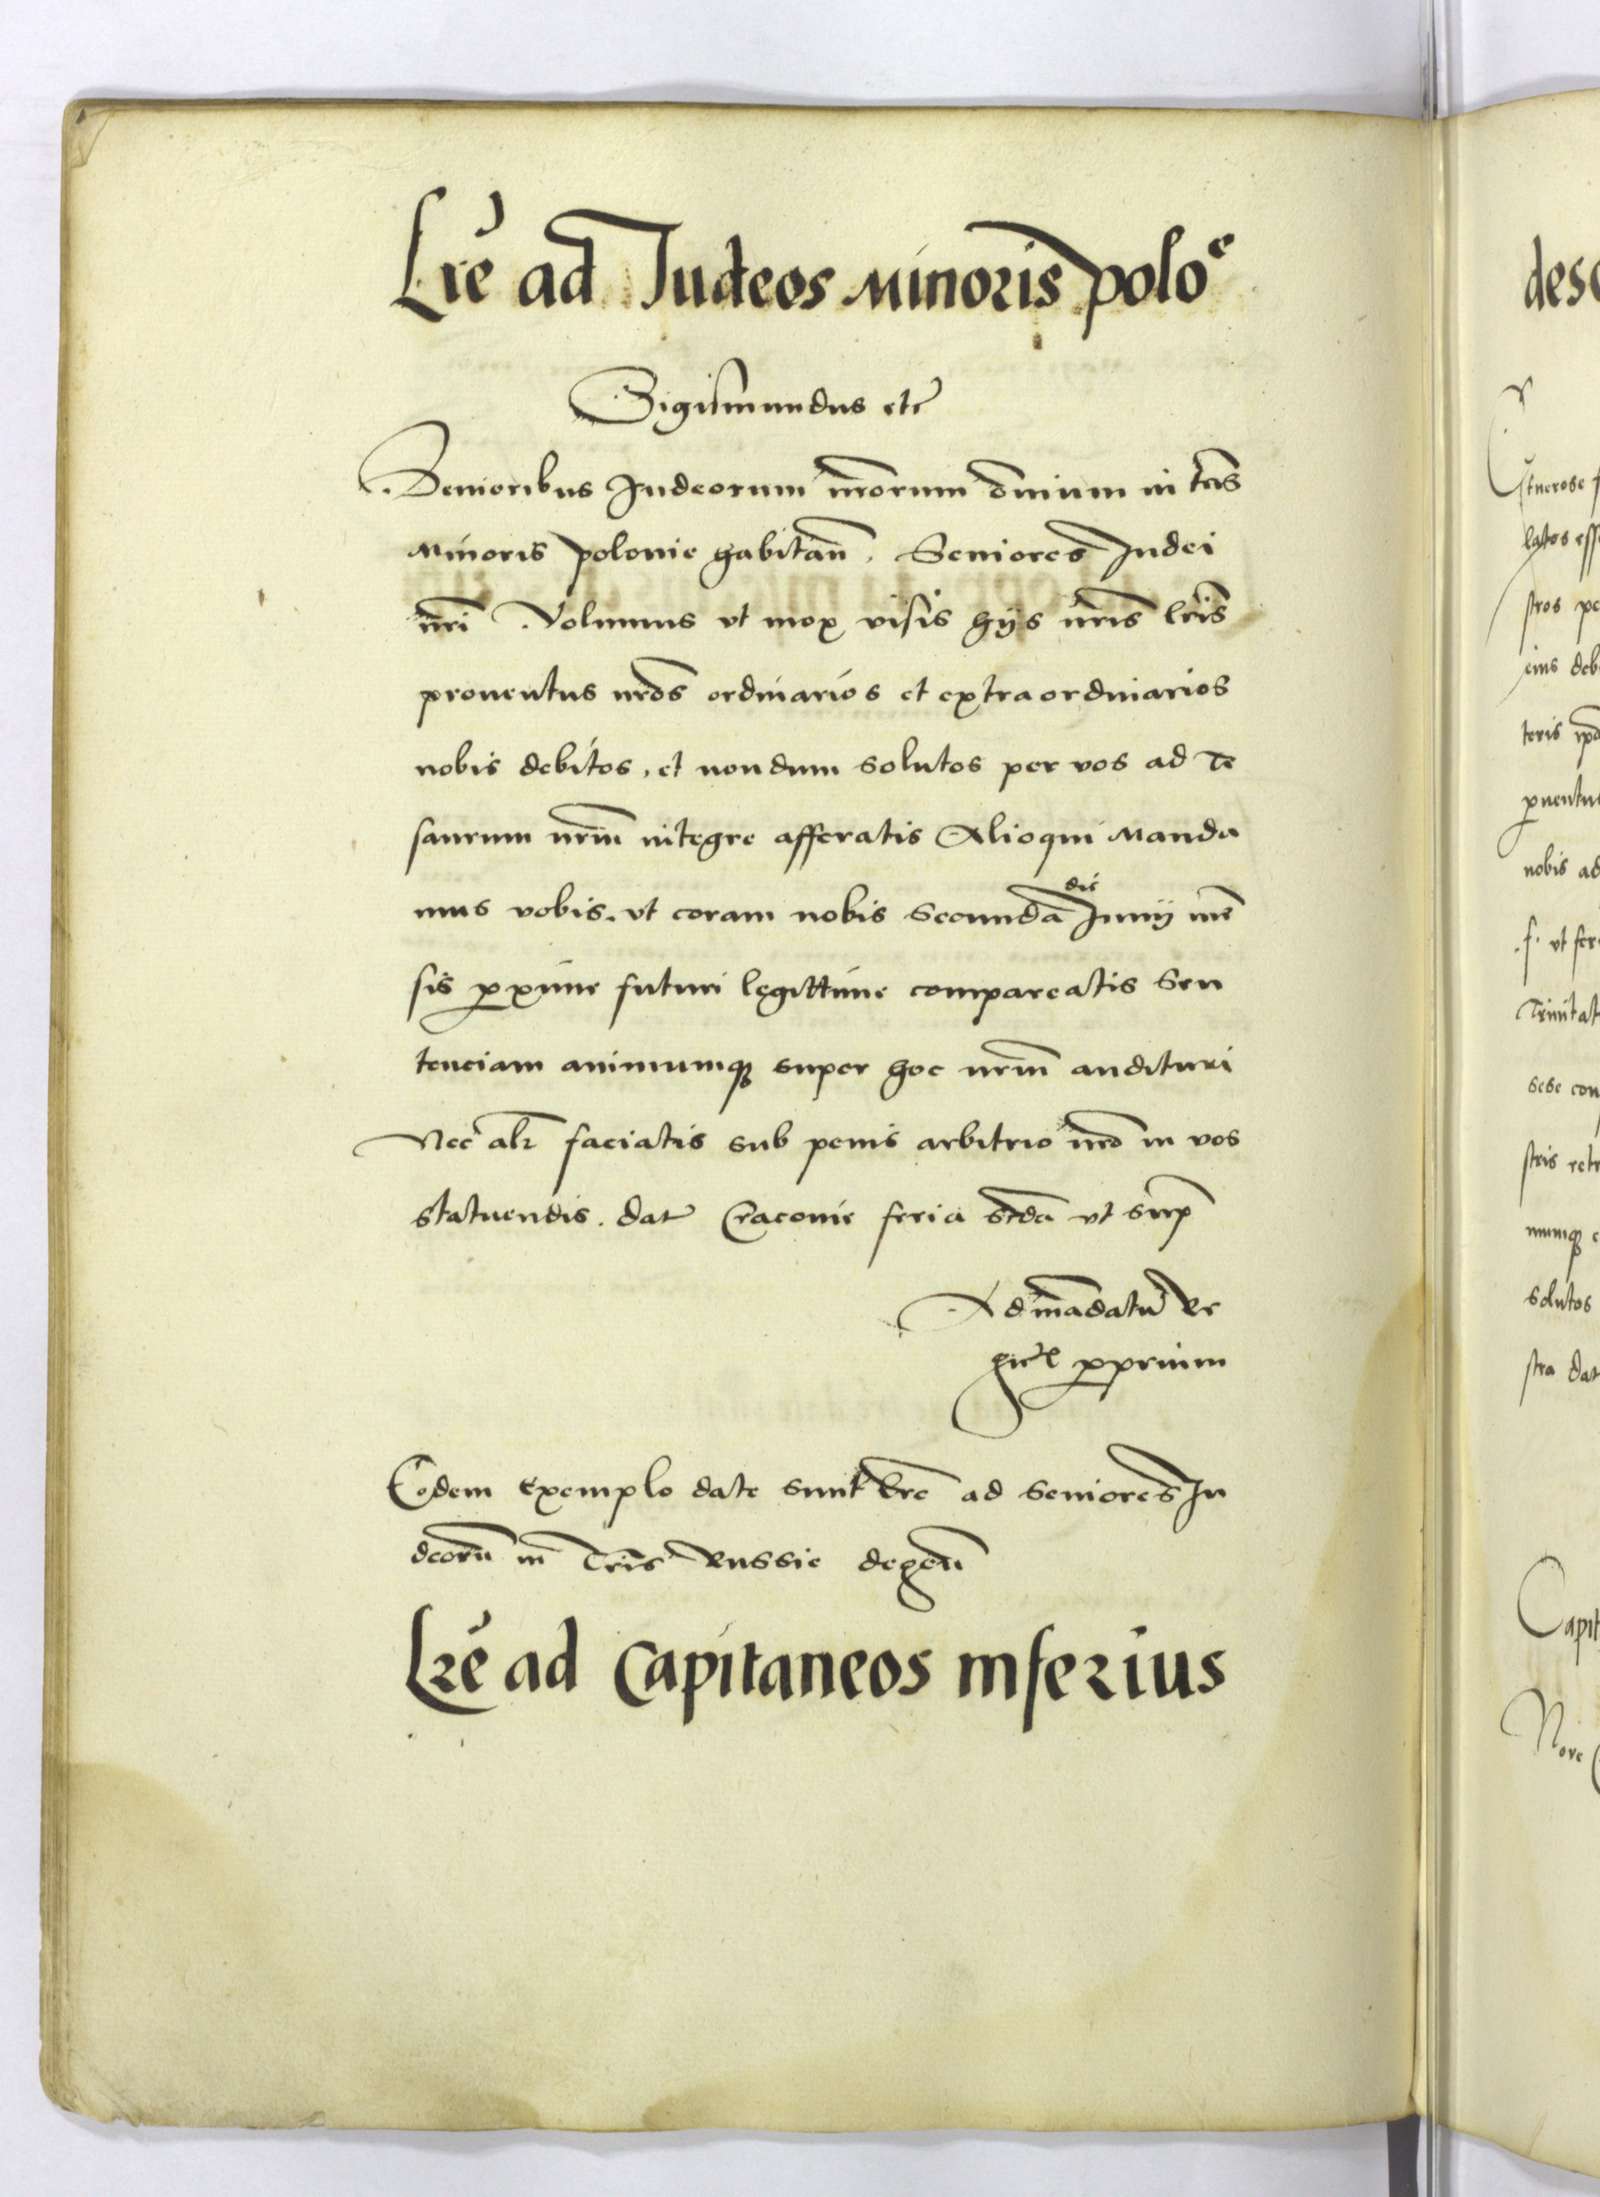 Lre ad Judeos Minoris polo^e
Sigismundus etc
Senioribus Judeorum nrorum omnium in tris
Minoris polonie habitan. Seniores Judei
nri Volumus vt mox visis hijs nris lris
proventus nros ordinarios et extraordinarios
nobis debitos, et nondum solutos per vos ad Te
saurum nrm integre afferatis Alioqui Manda
mus vobis. vt coram nobis Secunda die Junij me
sis proxime futuri legittime compareatis Sen
tenciam animumq super hoc nrm audituri
Nec alr faciatis sub penis arbitrio nro in vos
statuendis. dat Cracovie feria scda vt supra
Ad mandatu Re
gie proprium
Eodem exemplo date sunt lre ad Seniores Ju
deoru in Tris Russie degen
Lre ad Capitaneos inferius
desc
Generose
latos
stros
eius deb
teris
nobis ad
vt fer
Trinitat
sese con
stris retr
mumq
solutos
stra dat
Capit
Nove